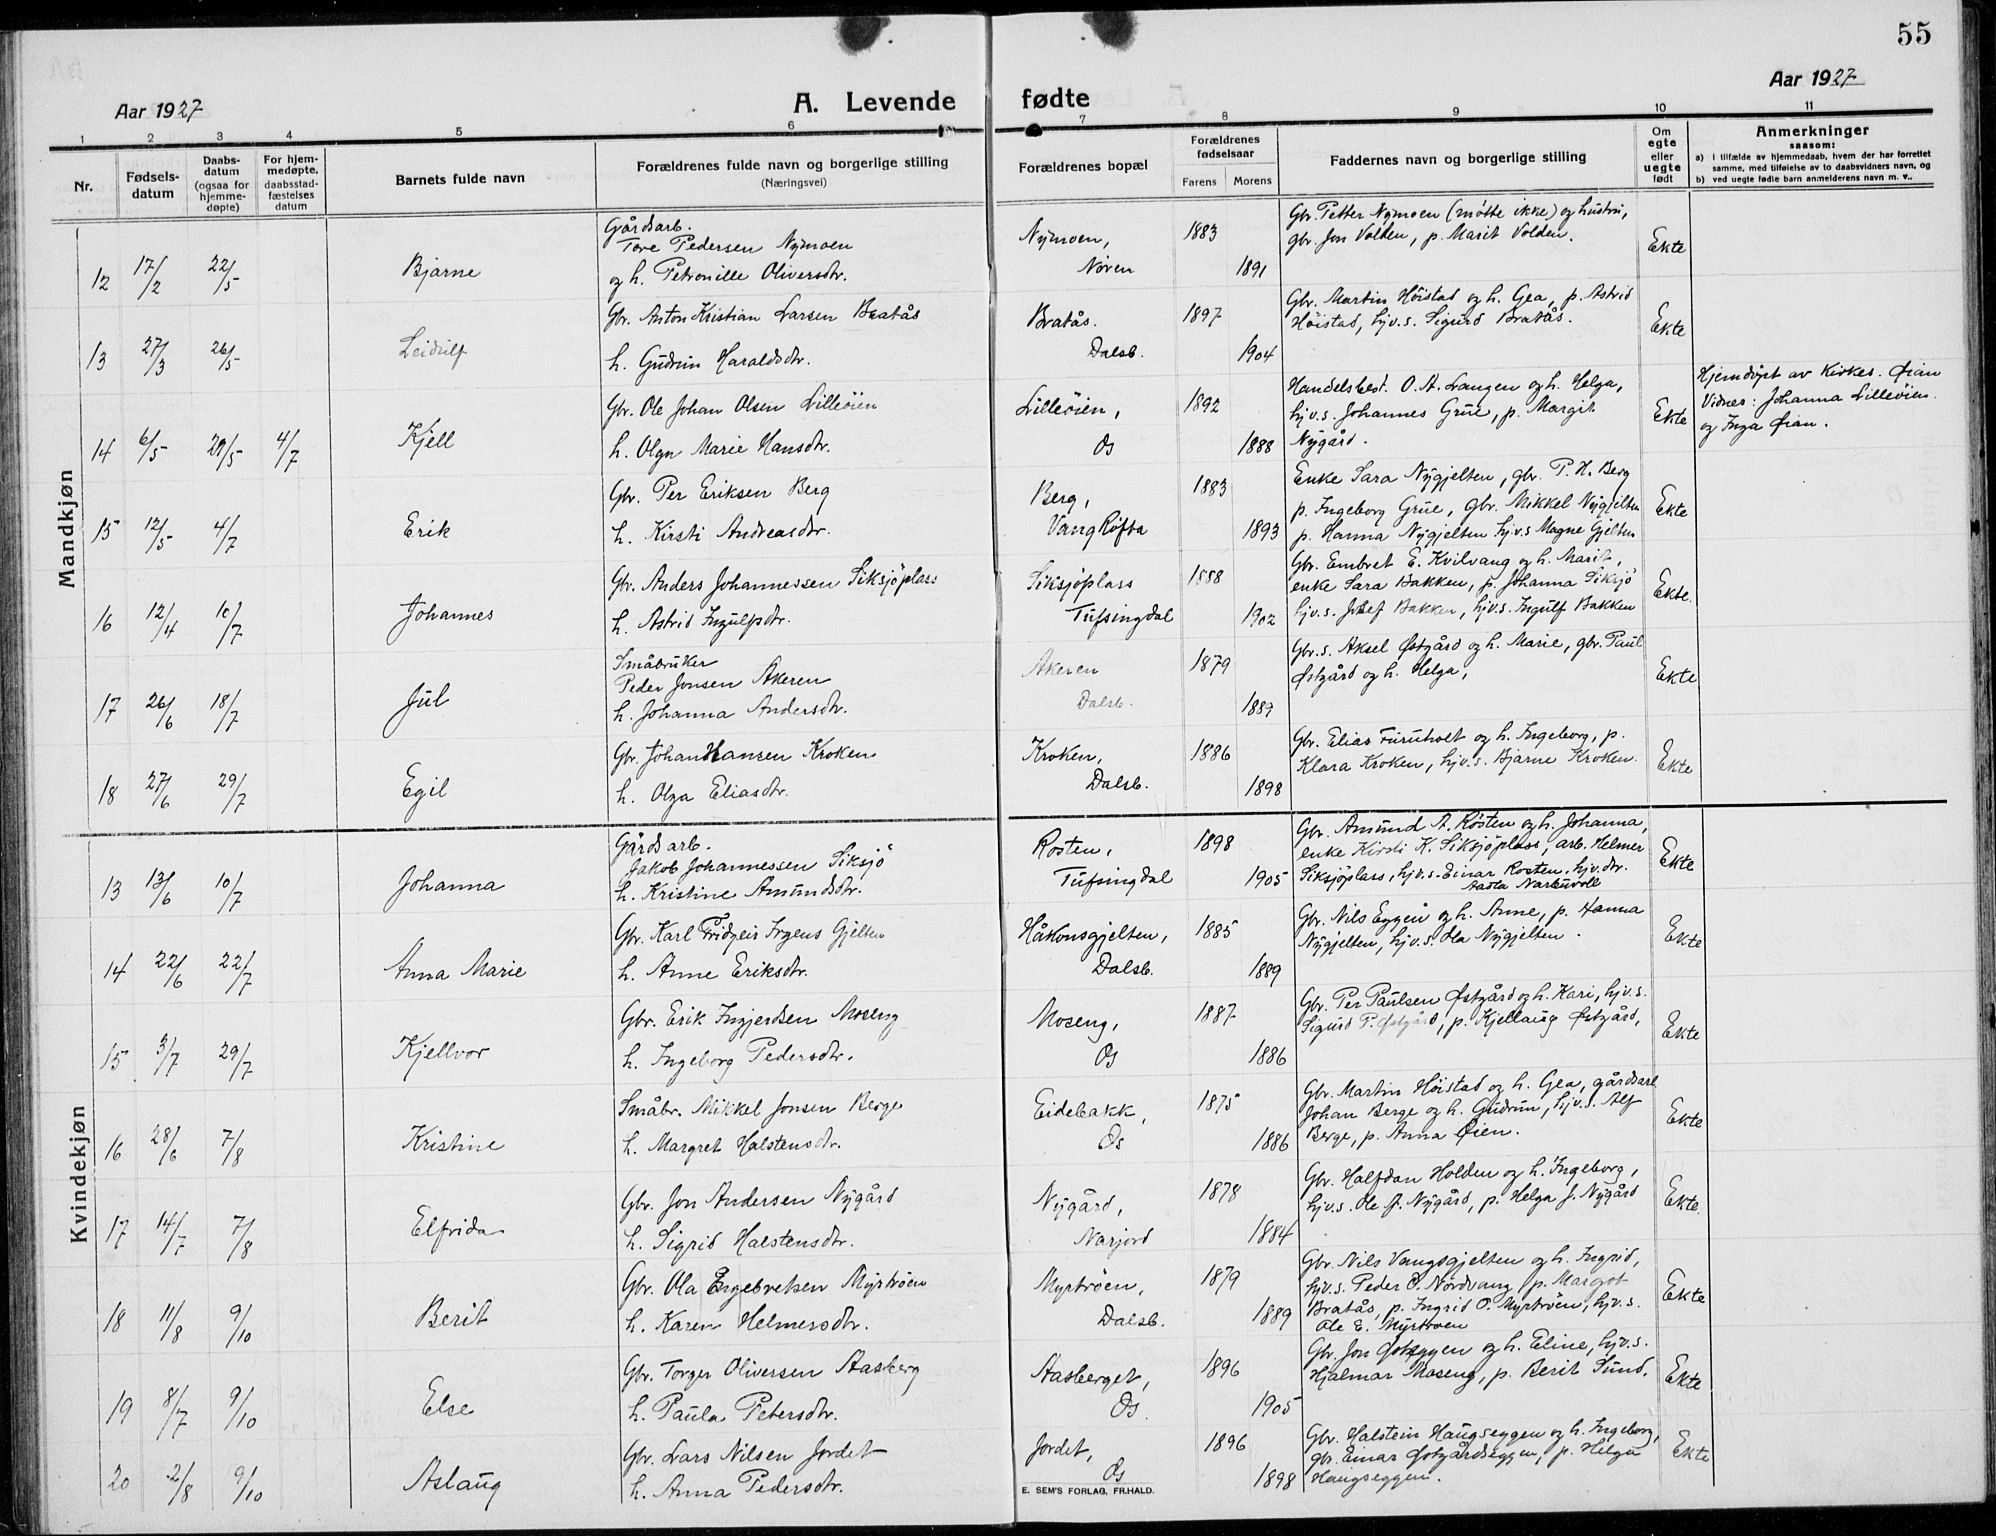 55
Aar 1927
A. Levende fødte
Aar 1927
1 2 3 4 5 6 7 8 9 10 11
Nr.
Fødsels-
datum
Daabs-
datum
(ogsaa for
hjemme-
døpte)
For hjem-
medøpte,
daabsstad-
fæstelses
datum
Barnets fulde navn
Forældrenes fulde navn og borgerlige stilling
(Næringsvei)
Forældrenes bopæl
Forældrenes
fødselsaar
Farens Morens
Faddernes navn og borgerlige stilling
Om
egte
eller
uegte
født
Anmerkninger
saasom:
a) i tilfælde av hjemmedaab, hvem der har forrettet
samme, med tilføielse av to daabsvidners navn, og
b) ved uegte fødte barn anmelderens navn m. v..
Mandkjøn
12 17/2 22/5 Bjarne
Gårdsarb.
Tore Pedersen Nymoen
og h. Petronille Oliversdtr.
Nymoen,
Nören
1883
1891
Gbr. Petter Nymoen (møtte ikke) og hustru,
gbr. Jon Volden, p. Marit Volden.
Ekte
13 27/3 26/5 Leidulf
Gbr. Anton Kristian Larsen Bratås
h. Gudrun Haraldsdtr.
Bratås.
Dalsb.
1897
1904
Gbr. Martin Höistad og h. Gea, p. Astrid
Höistad, hjv.s. Sigurd Bratås.
Ekte
14 6/5 29/5 4/7 Kjell
Gbr. Ole Johan Olsen Lilleöien
h. Olga Marie Hansdtr.
Lilleöien,
Os
1892
1888
Handelsbest. O. A. Langen og h. Helga,
hjv.s. Johannes Grue, p. Margit
Nygård.
Ekte
Hjemdöpt av Kirkes. Øian
Vidner: Johanna Lilleöien
og Inga Øian.
15 12/5 4/7 Erik
Gbr. Per Eriksen Berg
h. Kirsti Andreasdtr.
Berg,
VangRöfta
1883
1893
Enke Sara Nygjelten, gbr. P. H. Berg
p. Ingeborg Grue, gbr. Mikkel Nygjelten
p. Hanna Nygjelten hjv.s Magne Gjelten
Ekte
16 12/4 10/7 Johannes
Gbr. Anders Johannessen Siksjöplass
h. Astrid Ingulfsdtr.
Siksjöplass
Tufsingdal
1888
1902
Gbr. Embret E. Kvilvang og h. Marit,
enke Sara Bakken, p. Johanna Siksjö
hjv.s. Josef Bakken, hjv.s. Ingulf Bakken
Ekte.
17 26/6 18/7 Jul
Småbruker
Peder Jonsen Akeren
h. Johanna Andersdtr.
Akeren
Dalsb.
1879
1889
Gbr.s. Aksel Østgård og h. Marie, gbr. Paul
Østgård og h. Helga,
Ekte
18 27/6 29/7 Egil
Gbr. Johan Hansen Kroken
h. Olga Eliasdtr.
Kroken,
Dalsb.
1886
1898
Gbr. Elias Furuholt og h. Ingeborg, p.
Klara Kroken, hjv.s. Bjarne Kroken.
Ekte
Kvindekjøn
13 13/6 10/7 Johanna
Gårdsarb.
Jakob Johannessen Siksjö
h. Kristine Amundsdtr.
Rosten,
Tufsingdal
1898
1905
Gbr. Amund A. Rösten og h. Johanna,
enke Kirsti K. Siksjöplass, arb. Helmer
Siksjöplass, hjv.s. Einar Rosten, hjv.dtr.
Aasta Narbuvoll
Ekte
14 22/6 22/7 Anna Marie
Gbr. Karl Fridgeir Irgens Gjelten
h. Anne Eriksdtr.
Håkonsgjelten,
Dalsb.
1885
1889
Gbr. Nils Eggen og h. Anne, p. Hanna
Nygjelten, hjv.s. Ola Nygjelten.
Ekte
15 3/7 29/7 Kjellvor
Gbr. Erik Ingjerdsen Moseng
h. Ingeborg Pedersdtr.
Moseng,
Os
1887
1886
Gbr. Per Paulsen Østgård og h. Kari, hjv.s.
Sigurd P. Østgård, p. Kjellaug Østgård,
Ekte
16 28/6 7/8 Kristine
Småbr. Mikkel Jonsen Berge
h. Margret Halstensdtr.
Eidebakk,
Os
1875
1886
Gbr. Martin Höistad og h. Gea, gårdsarb
Johan Berge og h. Gudrun, hjv.s. Alf
Berge, p. Anna Øien.
Ekte
17 14/7 7/8 Elfrida
Gbr. Jon Andersen Nygård
h. Sigrid Halstensdtr.
Nygård,
Narjord
1878
1884
Gbr. Halfdan Holden og h. Ingeborg,
hjv.s. Ole J. Nygård, p. Helga J. Nygård
Ekte.
18 11/8 9/10 Berit
Gbr. Ola Engebretsen Myrtröen
h. Karen Helmersdtr.
Myrtröen,
Dalsb.
1879
1889
Gbr. Nils Vangsgjelten og h. Ingrid,
hjv.s. Peder O. Nordvang, p. Margot
Bratås, p. Ingrid O. Myrtröen, hjv.s.
Ole E. Myrtroen
Ekte
19 8/7 9/10 Else
Gbr. Torger Oliversen Aasberg
h. Paula Petersdtr.
Aasberget,
Os.
1896
1905
Gbr. Jon Østeggen og h. Eline, hjv.s.
Hjalmar Moseng, p. Berit Sund.
Ekte
20 2/8 9/10 Aslaug
Gbr. Lars Nilsen Jordet
h. Anna Pedersdtr.
Jordet,
Os
1896
1898
Gbr. Halstein Haugseggen og h. Ingeborg,
gbr. Einar Østgårdseggen, p. Helga
Haugseggen.
Ekte
E. SEM'S FORLAG, FR.HALD.